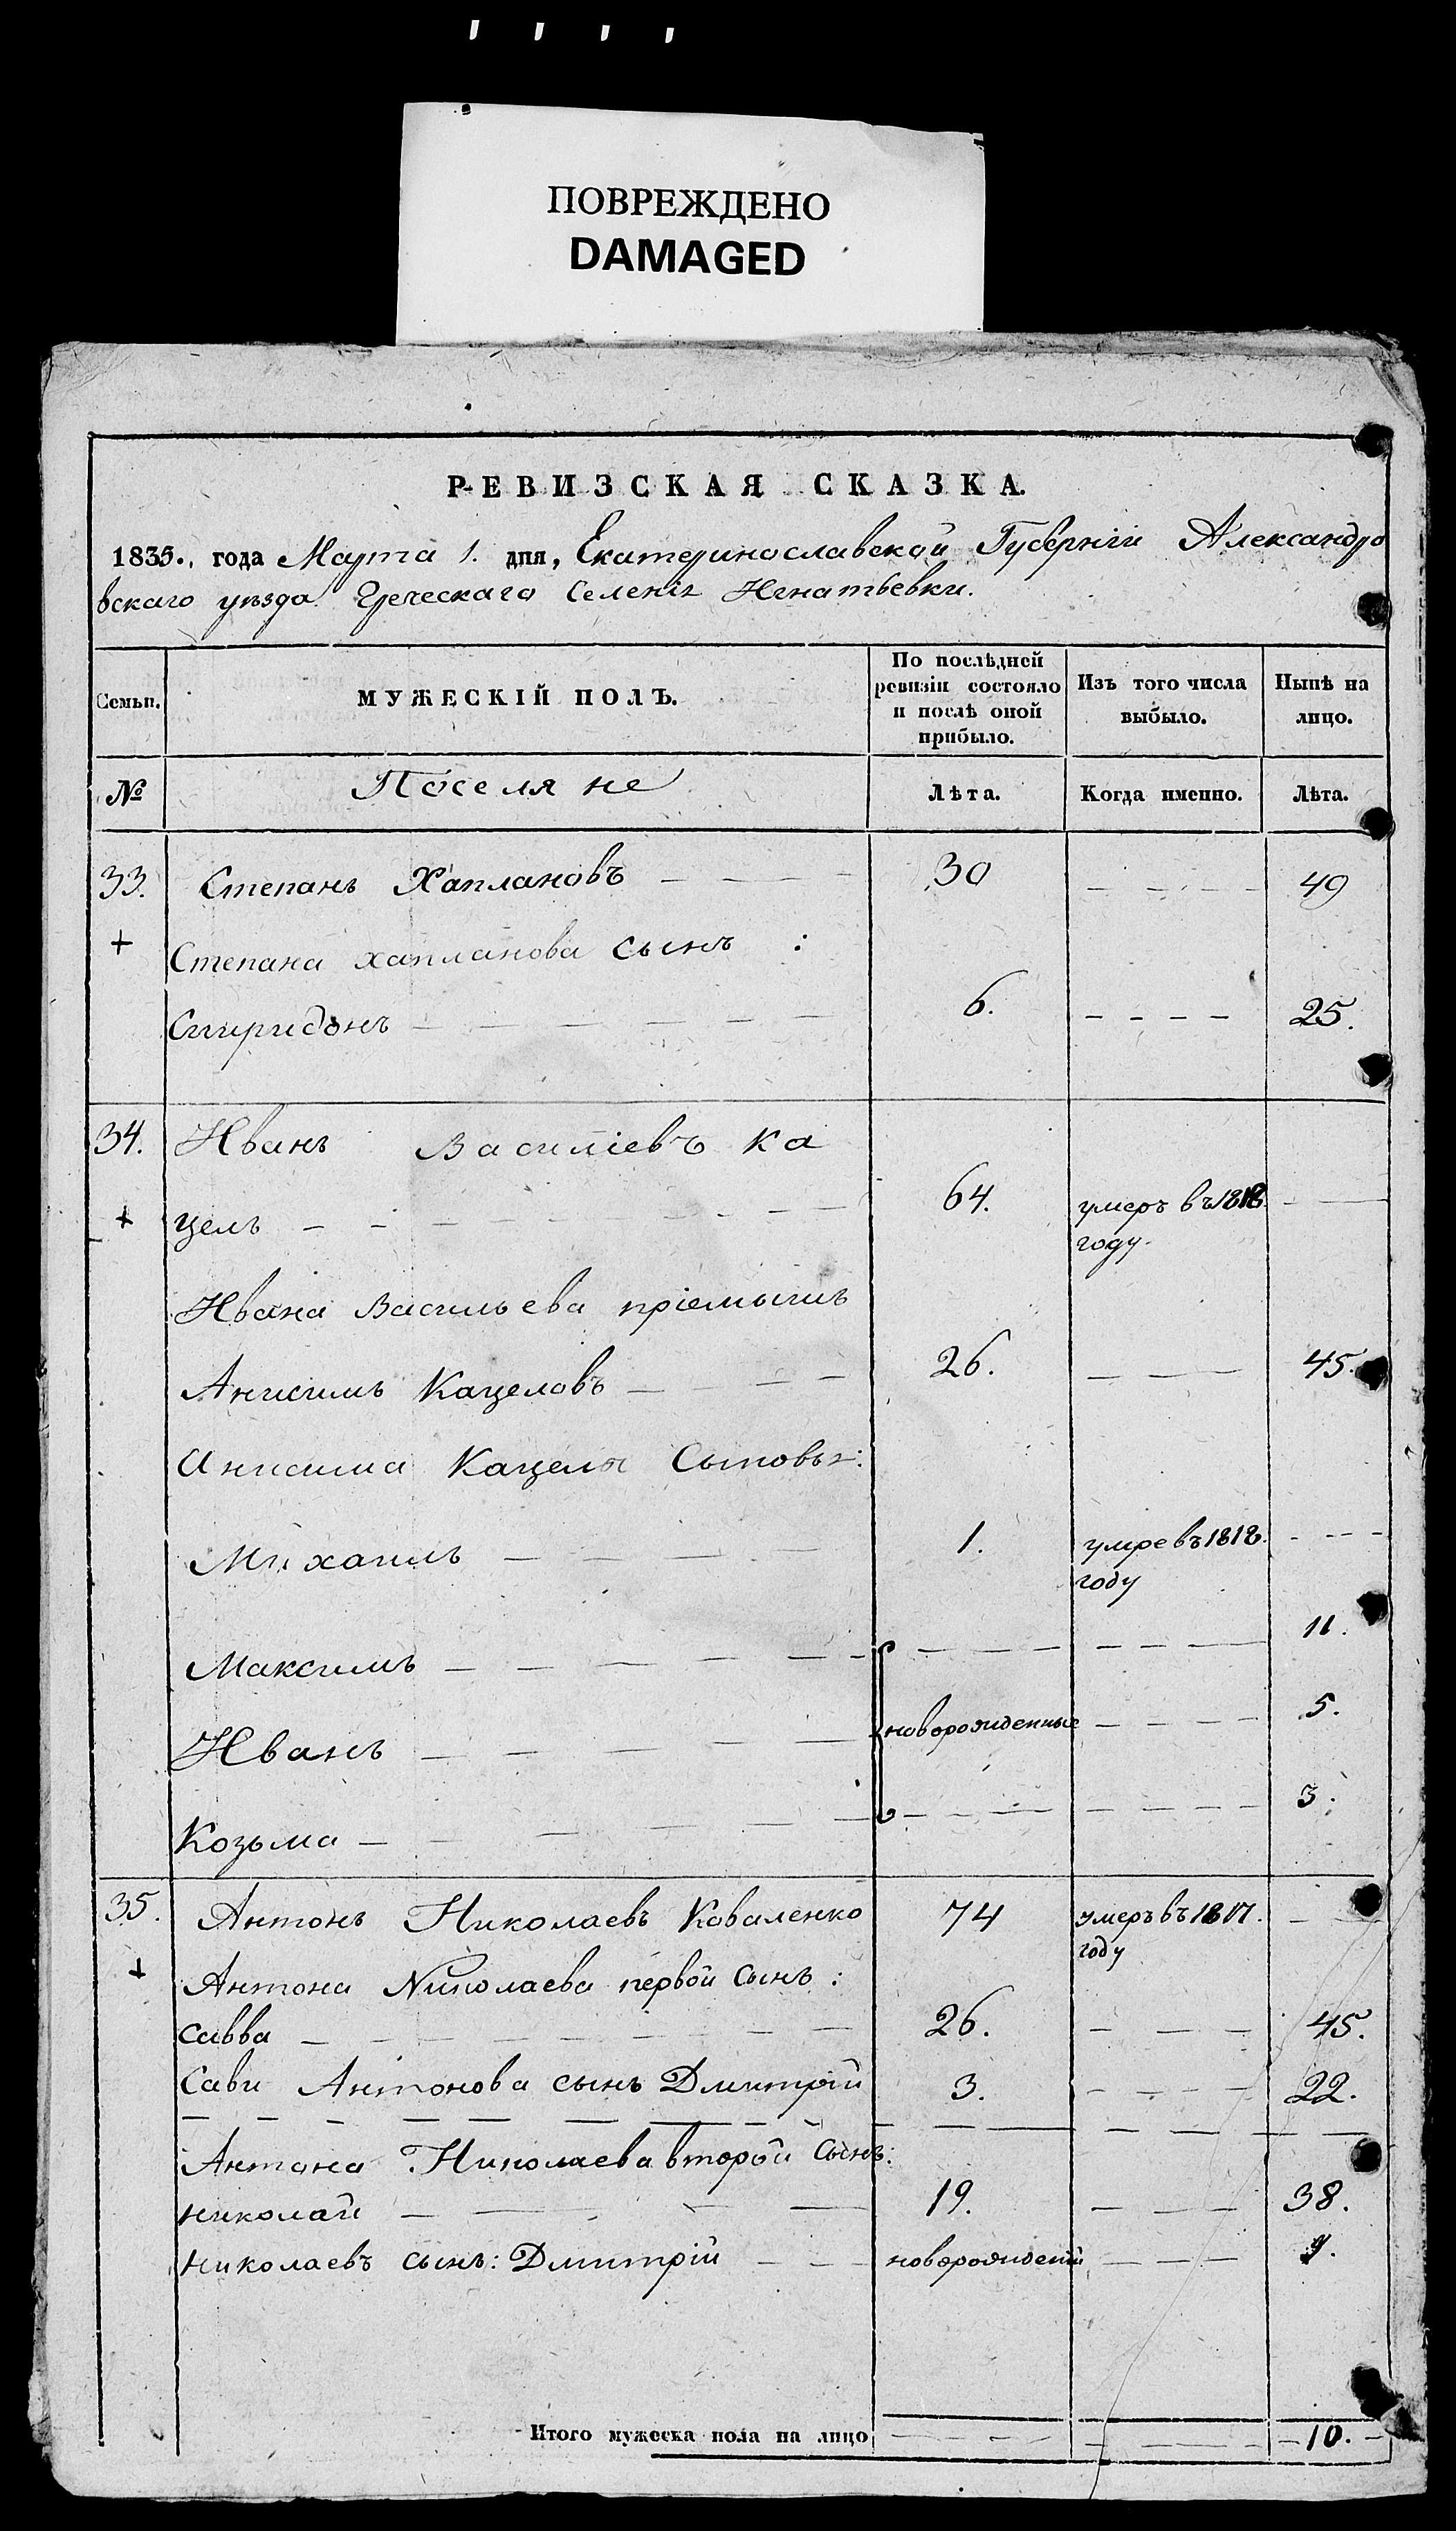 ПОВРЕЖДЕНО
DAMAGED
РЕВИЗСКАЯ СКАЗКА.
1835., года Марта 1. дня, Екатеринославской Губерніи Александро
вскаго уѣзда Греческаго Селенія Игнатьевки.
Семьи.
МУЖЕСКІЙ ПОЛЪ.
По послѣдней
ревизіи состояло
и послѣ оной
прибыло.
Изъ того числа
выбыло.
Нынѣ на
лицо.
№
Поселяне
Лѣта.
Когда именно.
Лѣта.
33. Степанъ Хаплановъ — — — — 30 — — — — 49
+ Степана хапланова сынъ :
Спиридонъ — — — — — — 6. — — — — 25.
34. Иванъ Василіевъ Ка
+ цель — — — — — — — — 64. умеръ въ 1818. — —
году.
Ивана Васильева пріемышъ
Анисимъ Кацеловъ — — — — 26. — — — 45.
Анисима Кацеля Сыновья:
Михаилъ — — — — — 1. умре въ 1818. — — —
году
Максимъ — — — — — — — — — — — — — — 11.
Иванъ — — — — — новорожденные — — — — 5.
Козьма — — — — — — — — — — — — — 3.
35. Антонъ Николаевъ Коваленко 74 умеръ въ 1817. — —
году
+ Антона Николаева первой сынъ :
савва — — — — — — — — 26. — — — 45.
Сави Антонова сынъ Дмитрій 3. — — — — 22.
Антона Николаева второй сынъ:
николай — — — — — 19. — — — 38.
николаевъ сынъ: Дмитрій — — — новорожденій — — — —
Итого мужеска пола на лицо — — — — — — — — 10. —